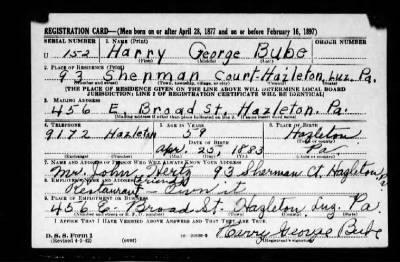 REGISTRATION CARD—(Men born on or after April 28, 1877 and on or before February 16, 1897)
SERIAL NUMBER 1. NAME (Print)
U 152 Harry George Bube
(First) (Middle) (Last)
2. PLACE OF RESIDENCE (Print)
93 Sherman Court-Hazleton, Luz. Pa.
(Number and street) (Town, township, village, or city) (County) (State)
[THE PLACE OF RESIDENCE GIVEN ON THE LINE ABOVE WILL DETERMINE LOCAL BOARD
JURISDICTION; LINE 2 OF REGISTRATION CERTIFICATE WILL BE IDENTICAL]
3. MAILING ADDRESS
456 E. Broad St, Hazleton, Pa.
[Mailing address if other than place indicated on line 2. If same insert word same]
4. TELEPHONE 5. AGE IN YEARS 6. PLACE OF BIRTH
9172 Hazleton 59 Hazleton
DATE OF BIRTH (Town or county)
Apr. 25, 1883 Pa
(Exchange) (Number) (Mo.) (Day) (Yr.) (State or country)
7. NAME AND ADDRESS OF PERSON WHO WILL ALWAYS KNOW YOUR ADDRESS
Mr. John Hertz 93 Sherman Ct. Hazleton
8. EMPLOYER'S NAME AND ADDRESS
(friend)
Restaurant - Own it
9. PLACE OF EMPLOYMENT OR BUSINESS
456 E. Broad St. Hazleton Luz. Pa.
(Number and street or R. F. D. number) (Town) (County) (State)
I AFFIRM THAT I HAVE VERIFIED ABOVE ANSWERS AND THAT THEY ARE TRUE.
D. S. S. Form 1
(Revised 4-1-42) (over)
Harry George Bube